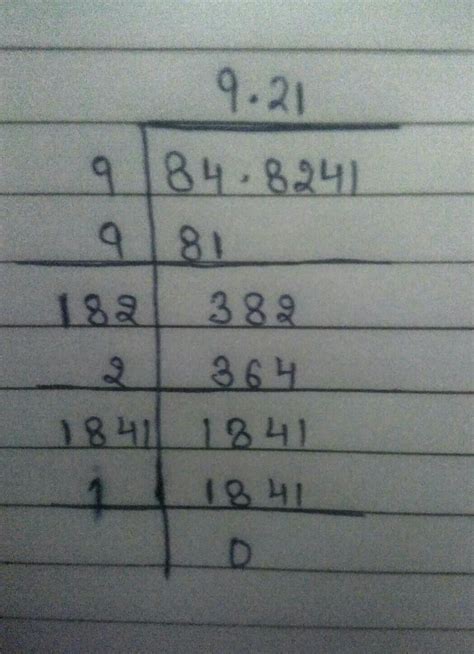 9.21
9 84.8241
9 81
182 382
2 364
1841 1841
1 1841
0